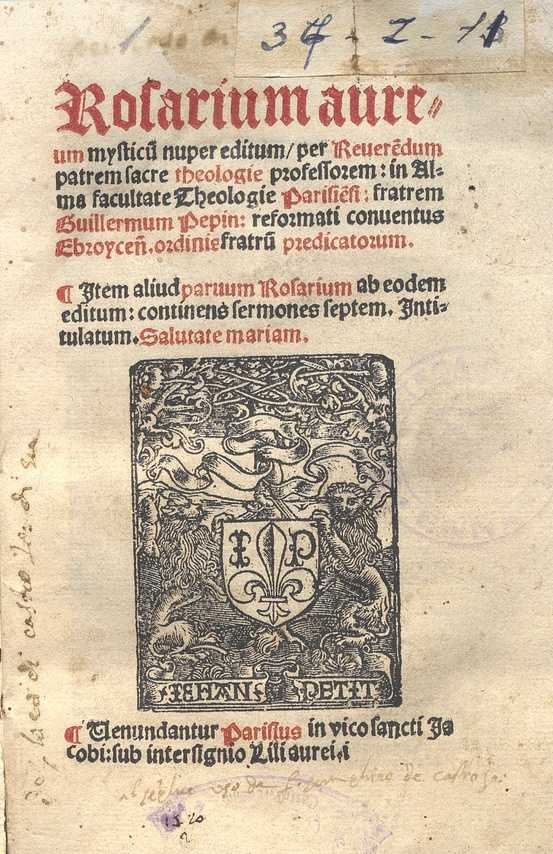 34 - 2 - 11
Rosarium aure⸗
um mysticũ nuper editum/ per Reuerẽdum
patrem sacre theologie professorem : in Al⸗
ma facultate Theologie Parisiẽsi : fratrem
Guillermum Pepin: reformati conuentus
Ebroyceñ. ordinis fratrũ predicatorum.
¶ Item aliud paruum Rosarium ab eodem
editum : continens sermones septem. Inti⸗
tulatum. Salutate mariam.
I P
IEHAN PETIT
¶ Uenundantur Parisius in vico sancti Ja
cobi: sub intersignio Lilii aurei. i
1520
2